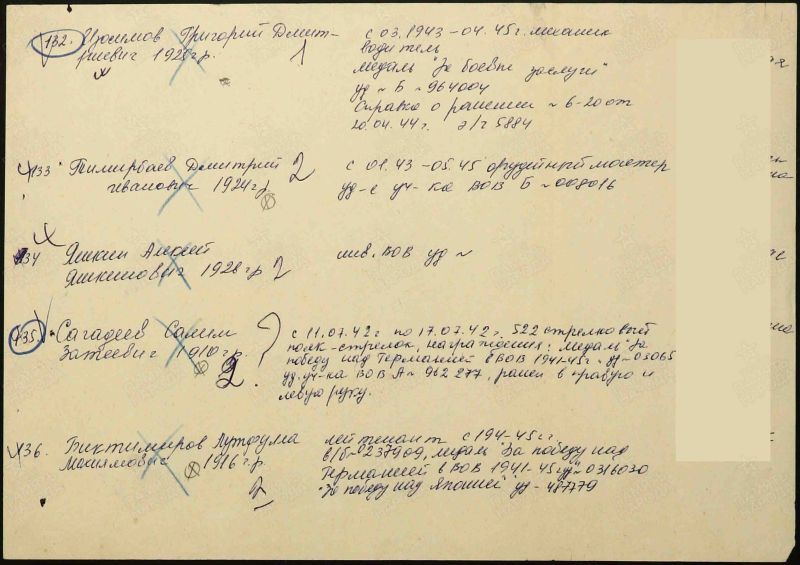 132. Изосимов Григорий Дмит-
риевич 1926 г.р. 1
с 03.1943-04.45 г. механик
водитель
медаль "За боевые заслуги"
уд ~ Б ~ 964004
Справка о ранении ~ 6-20 от
20.04.44 г. э/г 5884
133 Тимирбаев Дмитрий 2
иванович 1924 г.р.
с 01.43-05.45 орудейный мастер
уд-е уч-ка ВОВ Б ~ 008016
134 Яшкин Алексей
Яшкинович 1928 г.р. 2
инв. ВОВ уд ~
135. Сагадеев Салим ?
Затеевич 1910 г.р. 2.
с 11.07.42 г по 17.07.42 г. 522 стрелковый
полк - стрелок, награждения: медаль "За
победу над Германией в ВОВ 1941-45 г. уд ~ 05065
уд. уч-ка ВОВ А ~ 962 277, ранен в правую и
левую руку.
136. Биктимиров Лутфулла
1916 г.р. 2
лейтенант с 194-45 г.
в/б ~ 0237909, медаль "За победу над
Германией в ВОВ 1941-45 г." уд ~ 0316030
"За победу над Японией" уд - 487779